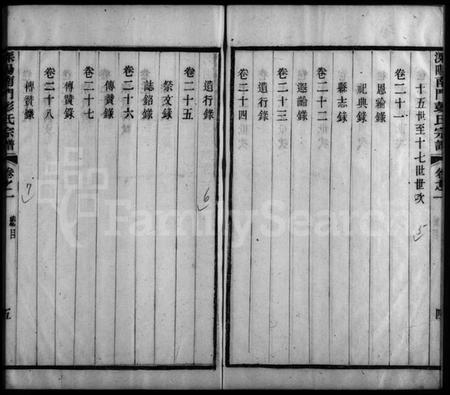 溧陽南門彭氏宗譜 卷之一
四
十五世至十七世世次
卷二十一
恩綸錄
祀典錄
縣志錄
卷二十二
遐齡錄
卷二十三
道行錄
卷二十四
5
道行錄
卷二十五
祭文錄
誌銘錄
卷二十六
傳贊錄
卷二十七
傳贊錄
卷二十八
傳贊錄
6
7
溧陽南門彭氏宗譜 卷之一 總目
五
FamilySearch